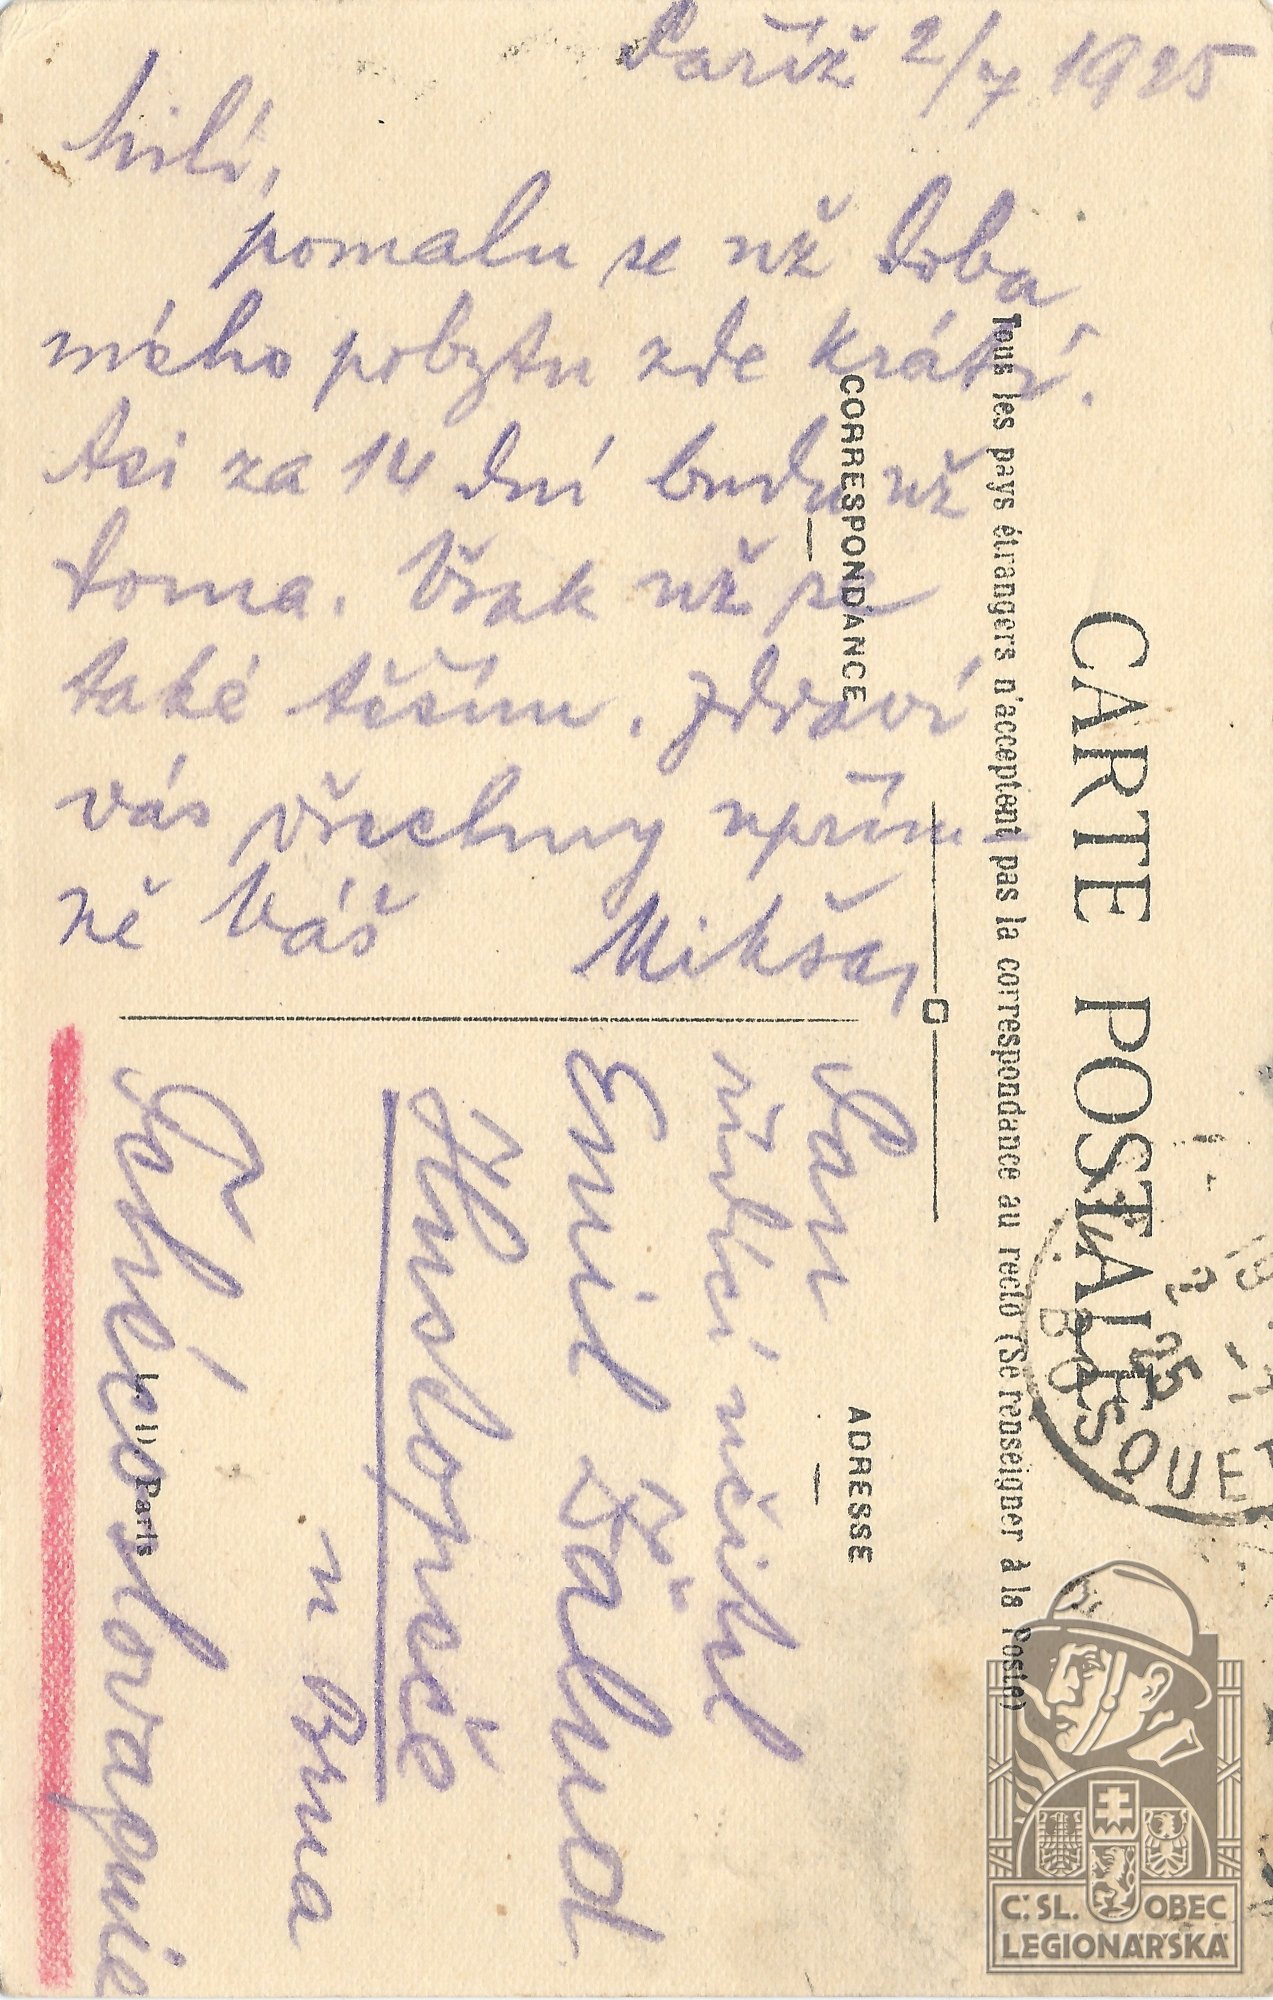 Paříž 2/7 1925
Milí,
pomalu se už doba
mého pobytu zde krátí.
Asi za 14 dní budu už
doma. Však už se
také těším. Zdraví
vás všechny upřím-
ně Váš Mikšaj
CARTE POSTALE
Tous les pays étrangers n'acceptent pas la correspondance au recto (Se renseigner à la Poste)
CORRESPONDANCE
ADRESSE
Pan
řídící učitel
Emil Ďalud
Huslopeče
u Brna
Tchécoslovaquie
Paris
2
25
BOSQUET
Č. SL. OBEC
LEGIONÁŘSKÁ